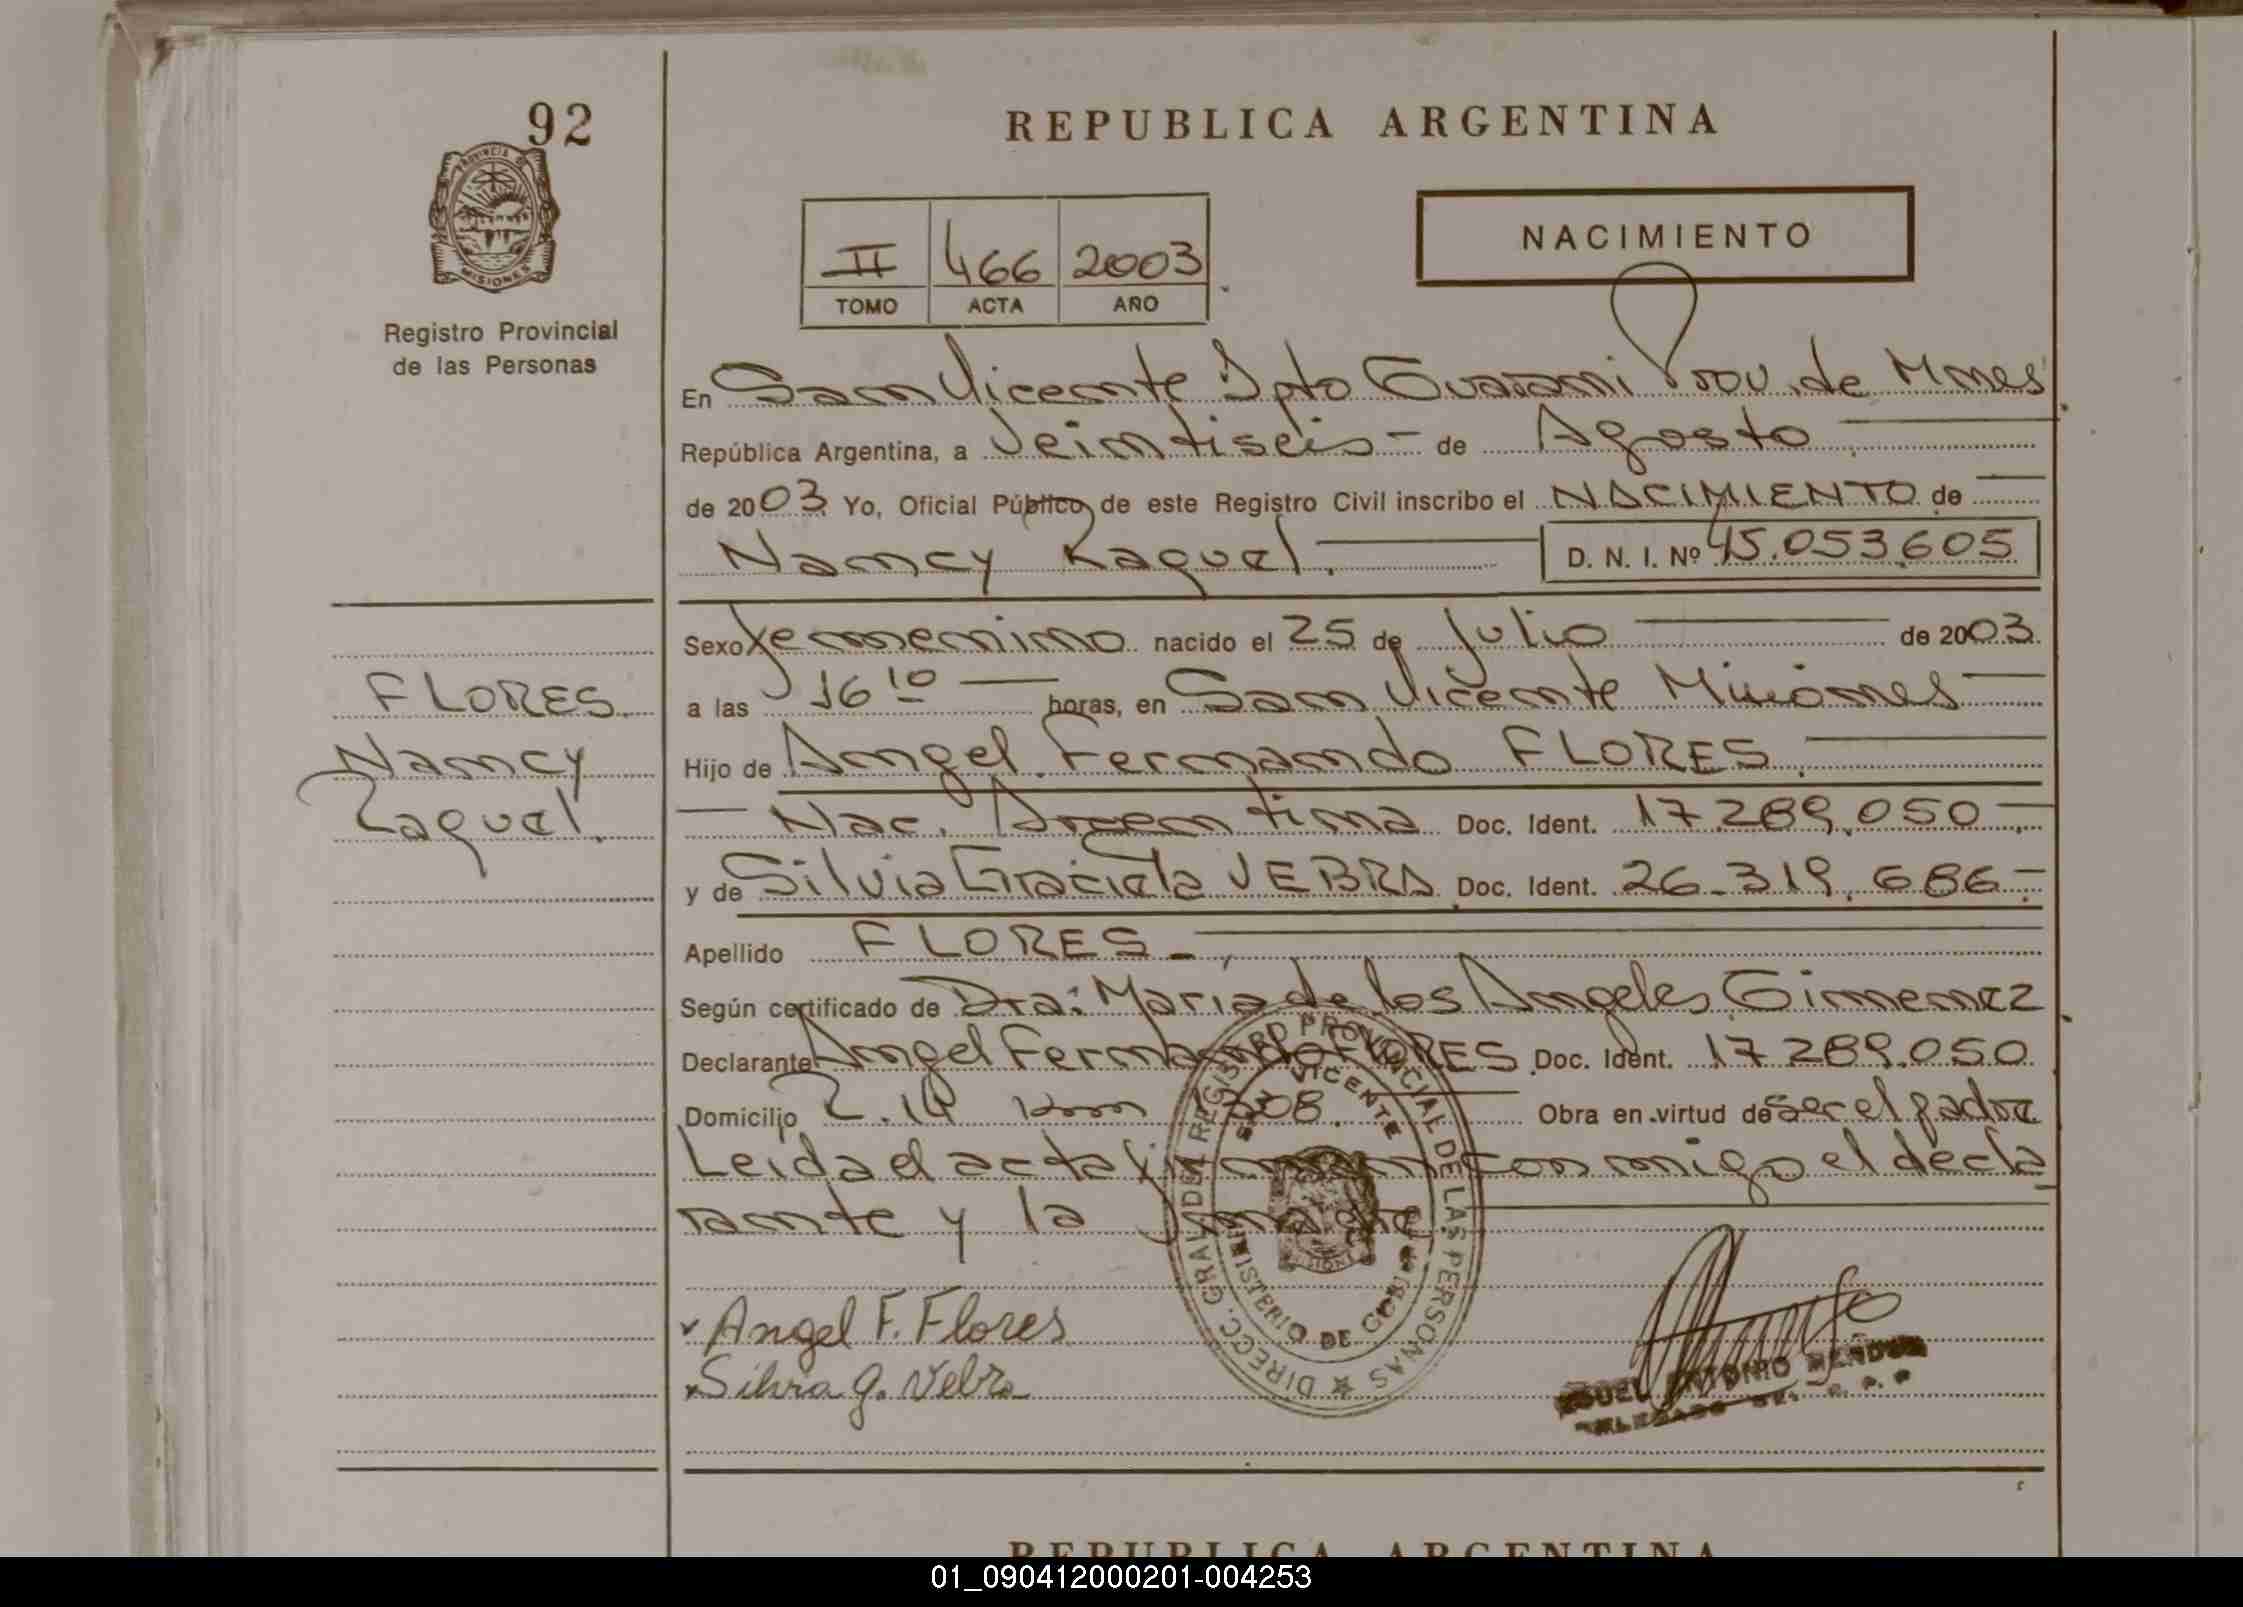 92
REPUBLICA ARGENTINA
PROVINCIA DE
MISIONES
Registro Provincial
de las Personas
II 466 2003
TOMO ACTA AÑO
NACIMIENTO
En San Vicente Dpto Guarani Prov. de Mnes
República Argentina, a Veintiseis - de Agosto
de 2003 Yo, Oficial Público de este Registro Civil inscribo el NACIMIENTO de
Nancy Raquel. D. N. I. Nº 45.053.605
Sexo femenino nacido el 25 de Julio de 2003
a las 16 10 horas, en San Vicente Misiones
Hijo de Angel Fernando FLORES
Nac. Argentina Doc. Ident. 17.289.050
y de Silvia Graciela VEBRA Doc. Ident. 26.319.686
Apellido FLORES
Según certificado de Dra: Maria de los Angeles Gimenez
Declarante Angel Fernando FLORES Doc. Ident. 17.289.050
Domicilio R. 14 Km 1308 Obra en virtud de ser el padre
Leida el acta firman con migo el decla
rante y la
FLORES
Nancy
Raquel.
Angel F. Flores
Silvia g. Vebra
DIRECC. GRAL. DEL REGISTRO PROVINCIAL DE LAS PERSONAS
VICENTE
MINISTERIO DE
ANTONIO
REPUBLICA ARGENTINA
01_090412000201-004253